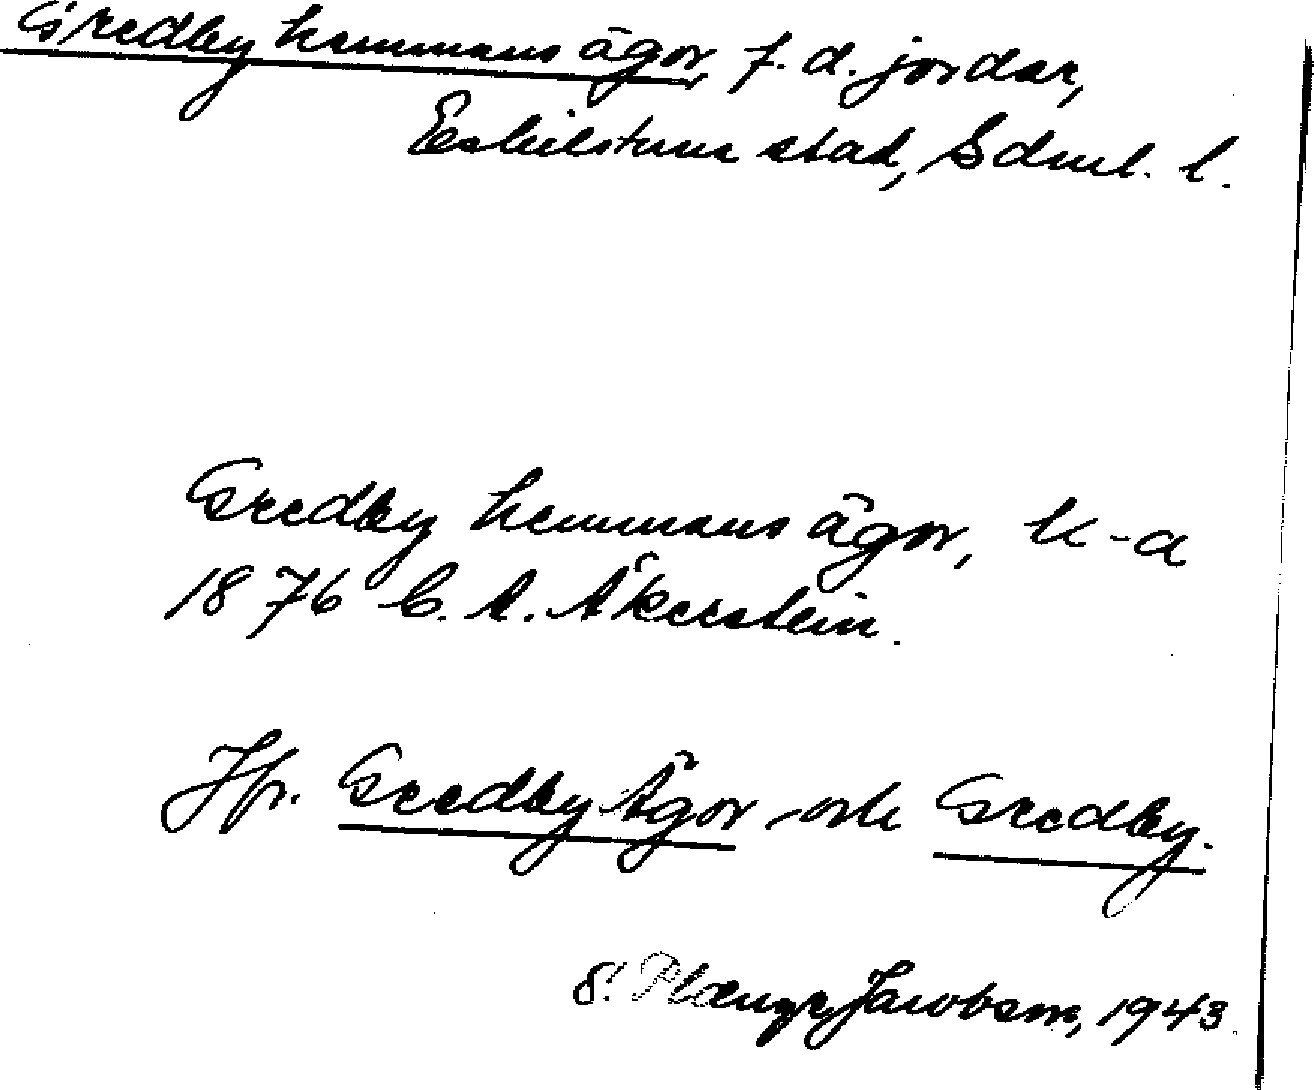 Gredby hemmans ägor, f.d. jordar,
Eskilstuna stad, Sdml. l.
Gredby hemmans ägor, k-a
1876 C. A. Åkerstein.
Jfr. Gredby Ägor och Gredby.
S. Jacobson, 1943.